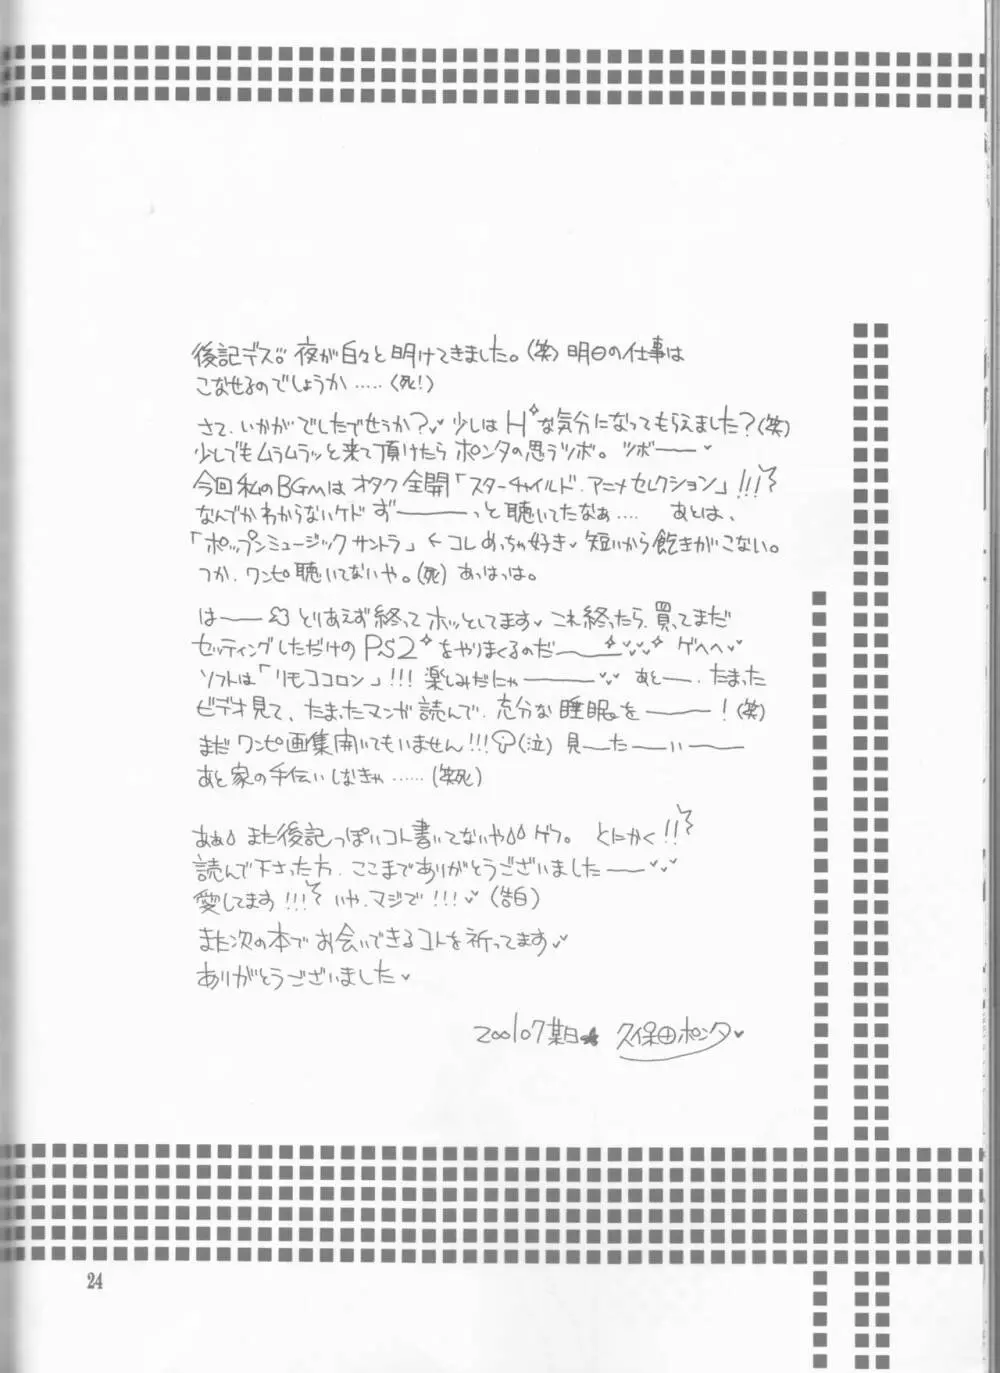 後記デス。夜が白々と明けてきました。(笑) 明日の仕事は
こなせるのでしょうか……(死!)
さて、いかがでしたでせうか?♥ 少しはHな気分になってもらえました?(笑)
少しでもムラムラッと来て頂けたらポンタの思うツボ。ツボ――♥
今回私のBGMはオタク全開「スターチャイルド・アニメセレクション」!!!
なんでかわからないケド ず――――っと聴いてたなぁ…. あとは、
「ポップンミュージックサントラ」←コレめっちゃ好き♥ 短いから飽きがこない。
つか、ワンピ聴いてないや。(死) あっはっは。
は―― とりあえず終ってホッとしてます♥ これ終ったら、買ってまだ
セッティングしただけのPS2をやりまくるのだ――♥♥ ゲヘヘ♥
ソフトは「リモココロン」!!! 楽しみだにゃ――――♥♥ あと―、たまった
ビデオ見て、たまったマンガ読んで、充分な睡眠を――!(笑)
まだワンピ画集開いてもいません!!!(泣) 見―た―い――
あと家の手伝いしなきゃ……(笑死)
あぁ また後記っぽいコト書いてないや ゲフ。 とにかく!!
読んで下さった方、ここまでありがとうございました――♥♥
愛してます!!! いや、マジで!!!♥ (告白)
また次の本でお会いできるコトを祈ってます♥
ありがとうございました♥
200107某日★ 久保田ポンタ♥
24